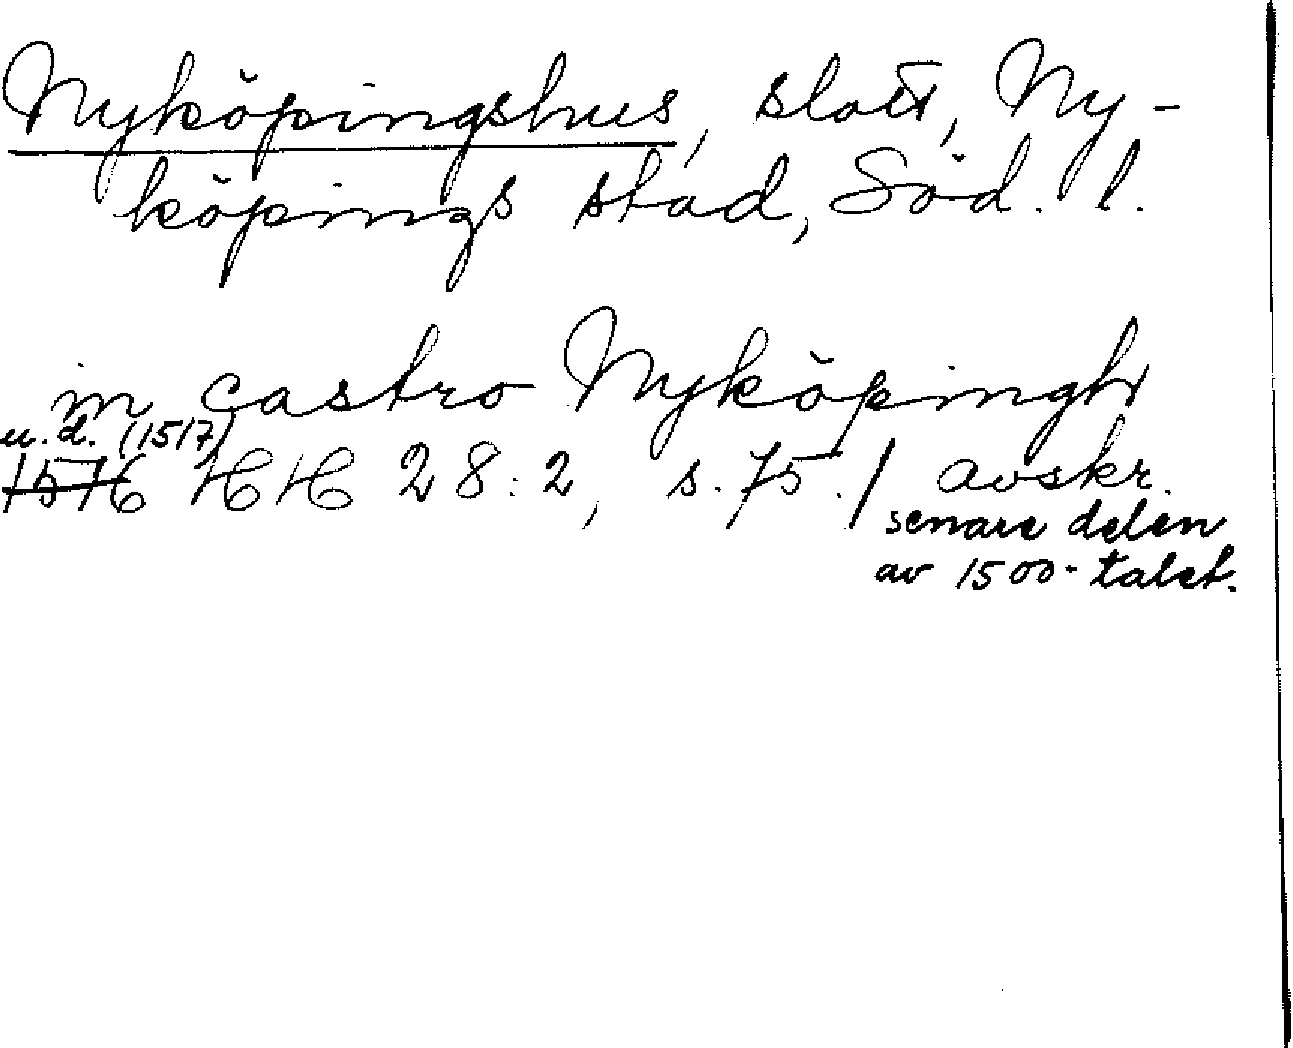 Nyköpingshus, slott, Ny-
köpings stad, Söd. l.
in castro Nyköpingh
u.d. (1517)
1576 HH 28:2, s. 75./ avskr.
senare delen
av 1500-talet.